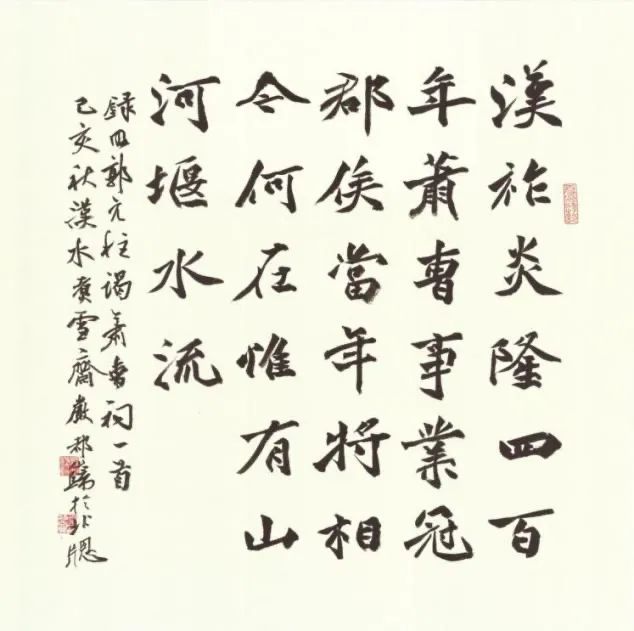 漢祚炎隆四百
年蕭曹事業冠
郡侯當年將相
今何在惟有山
河堰水流
録明郭元柱謁蕭曹祠一首
己亥秋漢水雪齋嚴邦於北窗